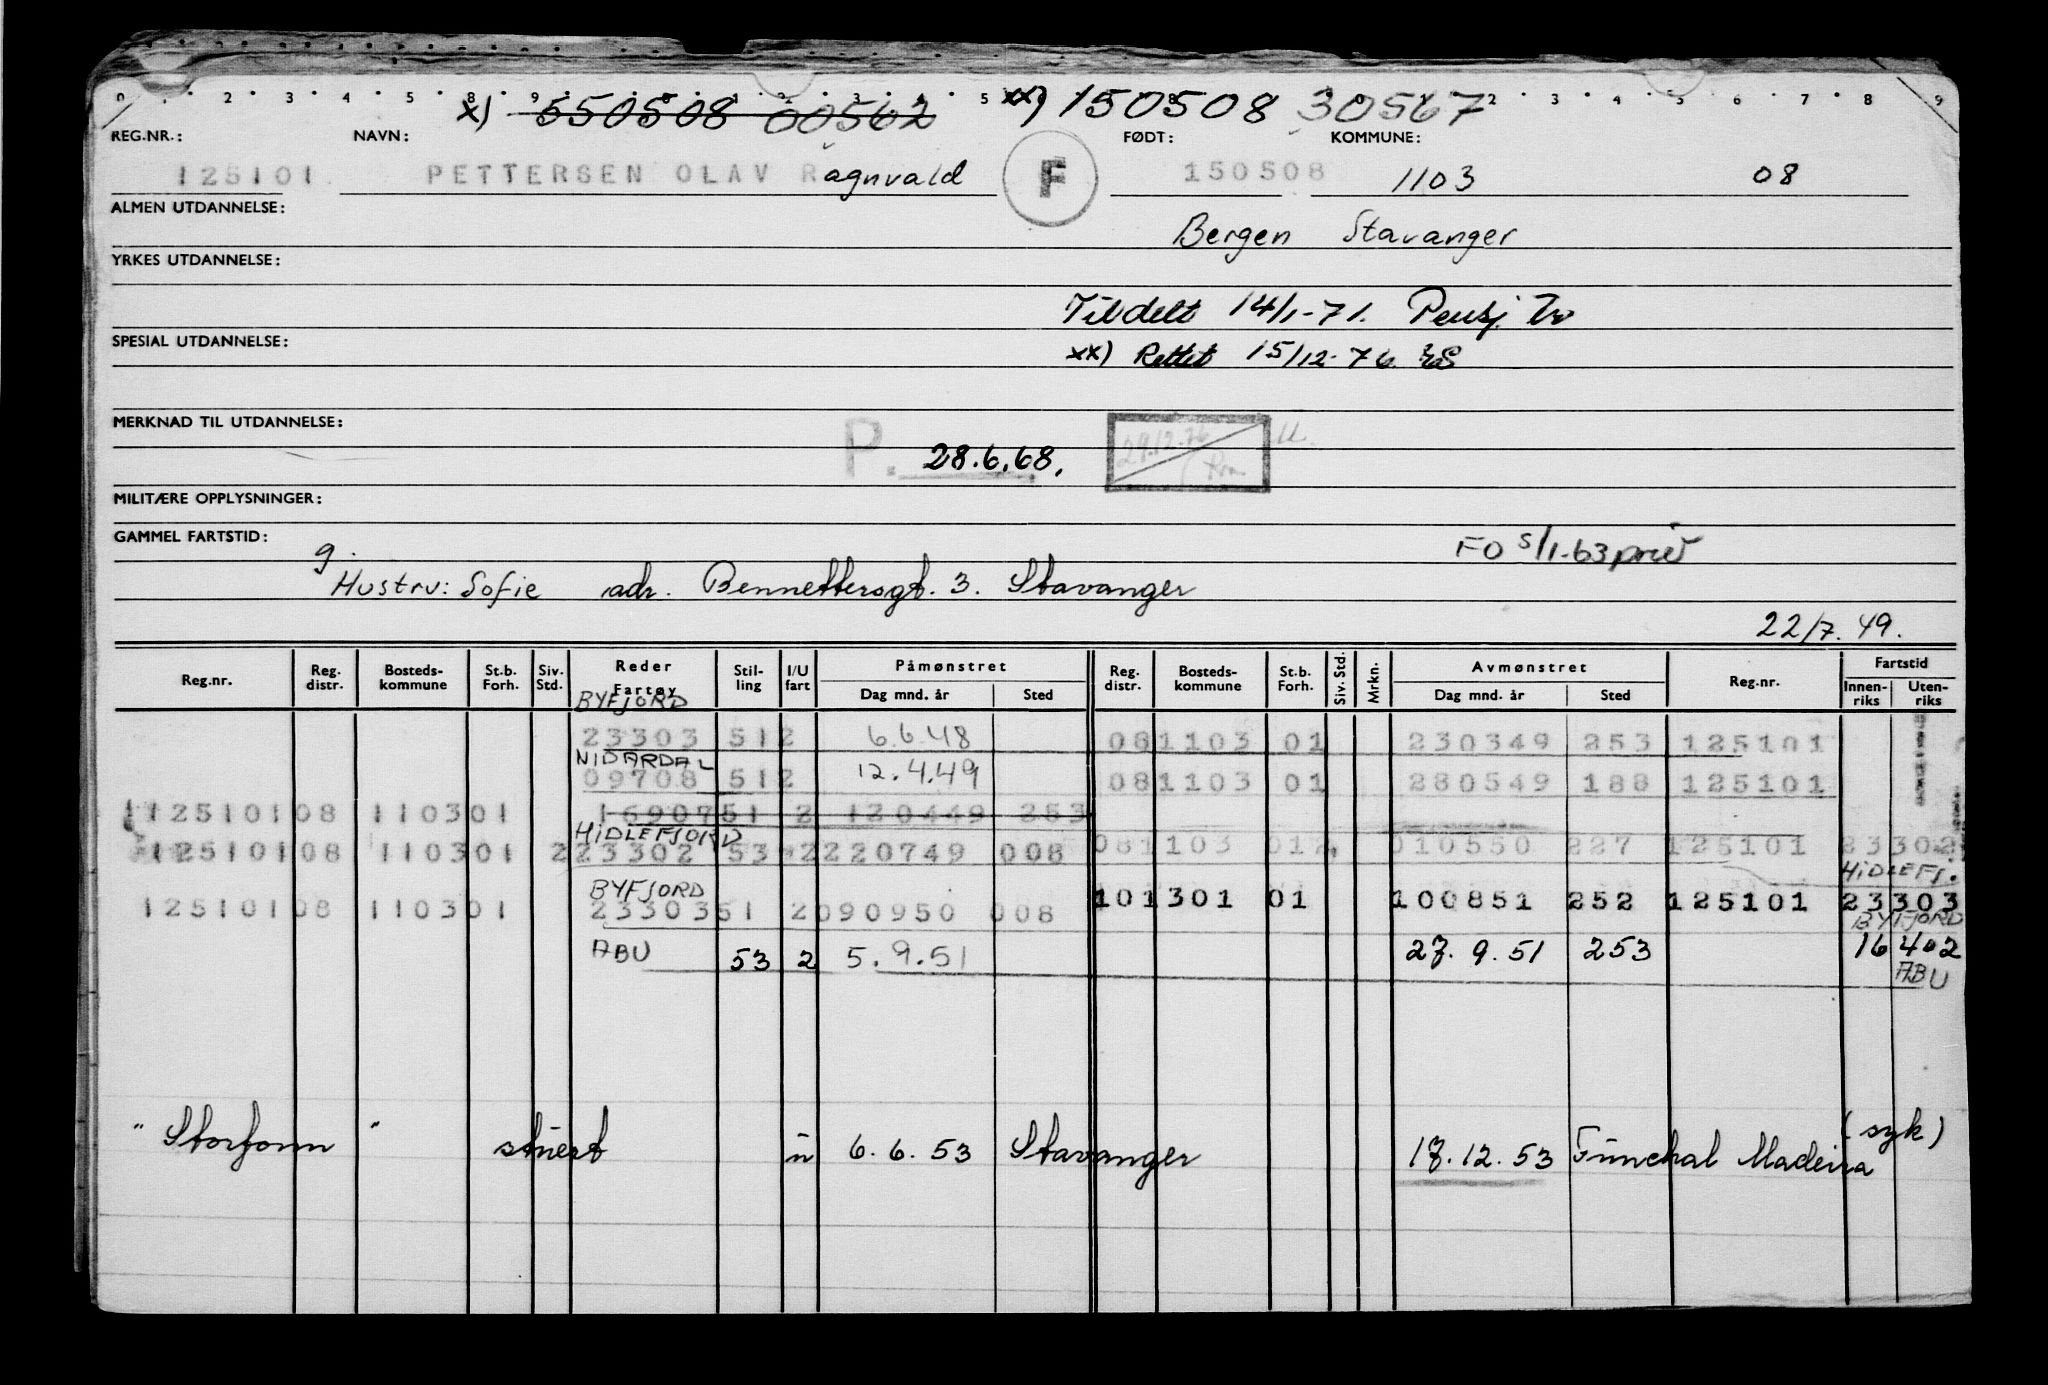 0 · 1 · 2 · 3 · 4 · 5 · 8 · 9 2 3 4 5 2 · 3 · 4 · 5 · 6 · 7 · 8 · 9
x) 550508 00562 xx) 150508 30567
REG.NR.: NAVN: FØDT: KOMMUNE:
125101 PETTERSEN OLAV Ragnvald F 150508 1103 08
ALMEN UTDANNELSE:
Bergen Stavanger
YRKES UTDANNELSE:
Tildelt 14/1-71. Pensj. Tr
SPESIAL UTDANNELSE:
xx) Rettet 15/12-76 ES
MERKNAD TIL UTDANNELSE:
P. 28.6.68. 29.12.76
MILITÆRE OPPLYSNINGER:
GAMMEL FARTSTID:
g. FO 5/1-63
Hustru: Sofie adr. Bennettersgt. 3. Stavanger
22/7. 49.
Reg.nr. Reg. distr. Bosteds- kommune St.b. Forh. Siv. Std. Reder Fartøy Stil- ling I/U fart Påmønstret Dag mnd. år Sted Reg. distr. Bosteds- kommune St.b. Forh. Siv. Std. Mrkn. Avmønstret Dag mnd. år Sted Reg.nr. Fartstid Innen- riks Uten- riks
BYFJORD
23303 512 6.6.48 081103 01 230349 253 125101
NIDARDAL
09708 512 12.4.49 081103 01 280549 188 125101
12510108 110301 1690751 2 120449 253
HIDLEFJORD
12510108 110301 2 23302 53 2 220749 008 081103 012 010550 227 125101 23302
HIDLEFJ.
BYFJORD
12510108 110301 2330351 2090950 008 101301 01 100851 252 125101 23303
BYFJORD
ABU 53 2 5.9.51 27.9.51 253 16402
ABU
"Storfonn" stuert u 6.6.53 Stavanger 17.12.53 Funchal Madeira (syk)